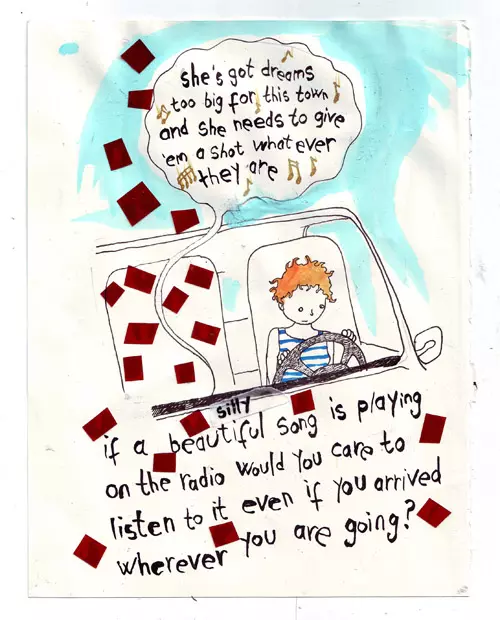 she's got dreams
too big for this town
and she needs to give
'em a shot whatever
they are
silly
if a beautiful song is playing
on the radio would you care to
listen to it even if you arrived
wherever you are going?